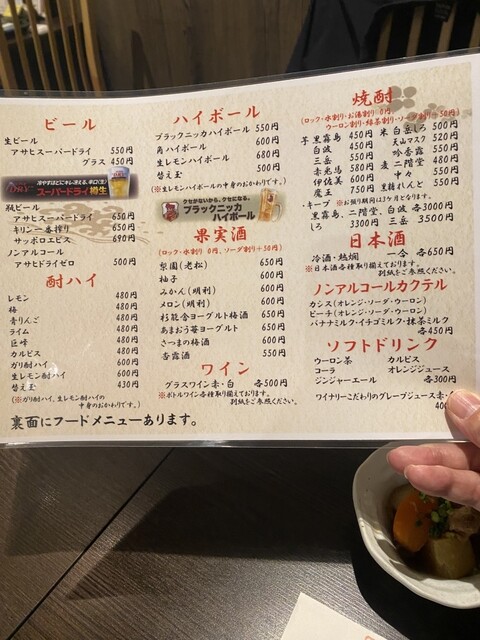 ビール
生ビール
アサヒスーパードライ 550円
グラス 450円
冷やすほどにキレ冴える、辛口〈生〉
スーパードライ樽生
瓶ビール
アサヒスーパードライ 650円
キリン一番搾り 650円
サッポロエビス 690円
ノンアルコール
アサヒドライゼロ 500円
酎ハイ
レモン 480円
梅 480円
青りんご 480円
ライム 480円
巨峰 480円
カルピス 480円
ガリ酎ハイ 600円
生レモン酎ハイ 600円
替え玉 430円
(※ガリ酎ハイ、生レモン酎ハイの
中身のおかわりです。)
裏面にフードメニューあります。
ハイボール
ブラックニッカハイボール 550円
角ハイボール 600円
生レモンハイボール 680円
替え玉 500円
(※生レモンハイボールの中身のおかわりです。)
クセがないから、クセになる。
ブラックニッカ
ハイボール
果実酒
(ロック・水割り 0円、ソーダ割り+50円)
梨園(老松) 650円
柚子 600円
みかん(明利) 600円
メロン(明利) 600円
杉能舎ヨーグルト梅酒 650円
あまおう苺ヨーグルト 650円
さつまの梅酒 600円
杏露酒 550円
ワイン
グラスワイン赤・白 各500円
※ボトルワイン各種取り揃えております。
別紙をご参照ください。
焼酎
(ロック・水割り・お湯割り 0円
ウーロン割り・緑茶割り・ソーダ割り+50円)
芋 黒霧島 450円
白波 450円
三岳 550円
赤兎馬 580円
伊佐美 600円
魔王 750円
米 白岳しろ 500円
天山マスク 520円
吟香露 550円
麦 二階堂 480円
中々 550円
黒糖 れんと 550円
・キープ ※お預り期間は3ヶ月となります。
黒霧島、二階堂、白波 各3000円
しろ 3300円 三岳 3500円
日本酒
冷酒・熱燗 一合 各650円
※日本酒各種取り揃えております。
別紙をご参照ください。
ノンアルコールカクテル
カシス(オレンジ・ソーダ・ウーロン)
ピーチ(オレンジ・ソーダ・ウーロン)
バナナミルク・イチゴミルク・抹茶ミルク
各450円
ソフトドリンク
ウーロン茶 カルピス
コーラ オレンジジュース
ジンジャーエール 各300円
ワイナリーこだわりのグレープジュース赤・